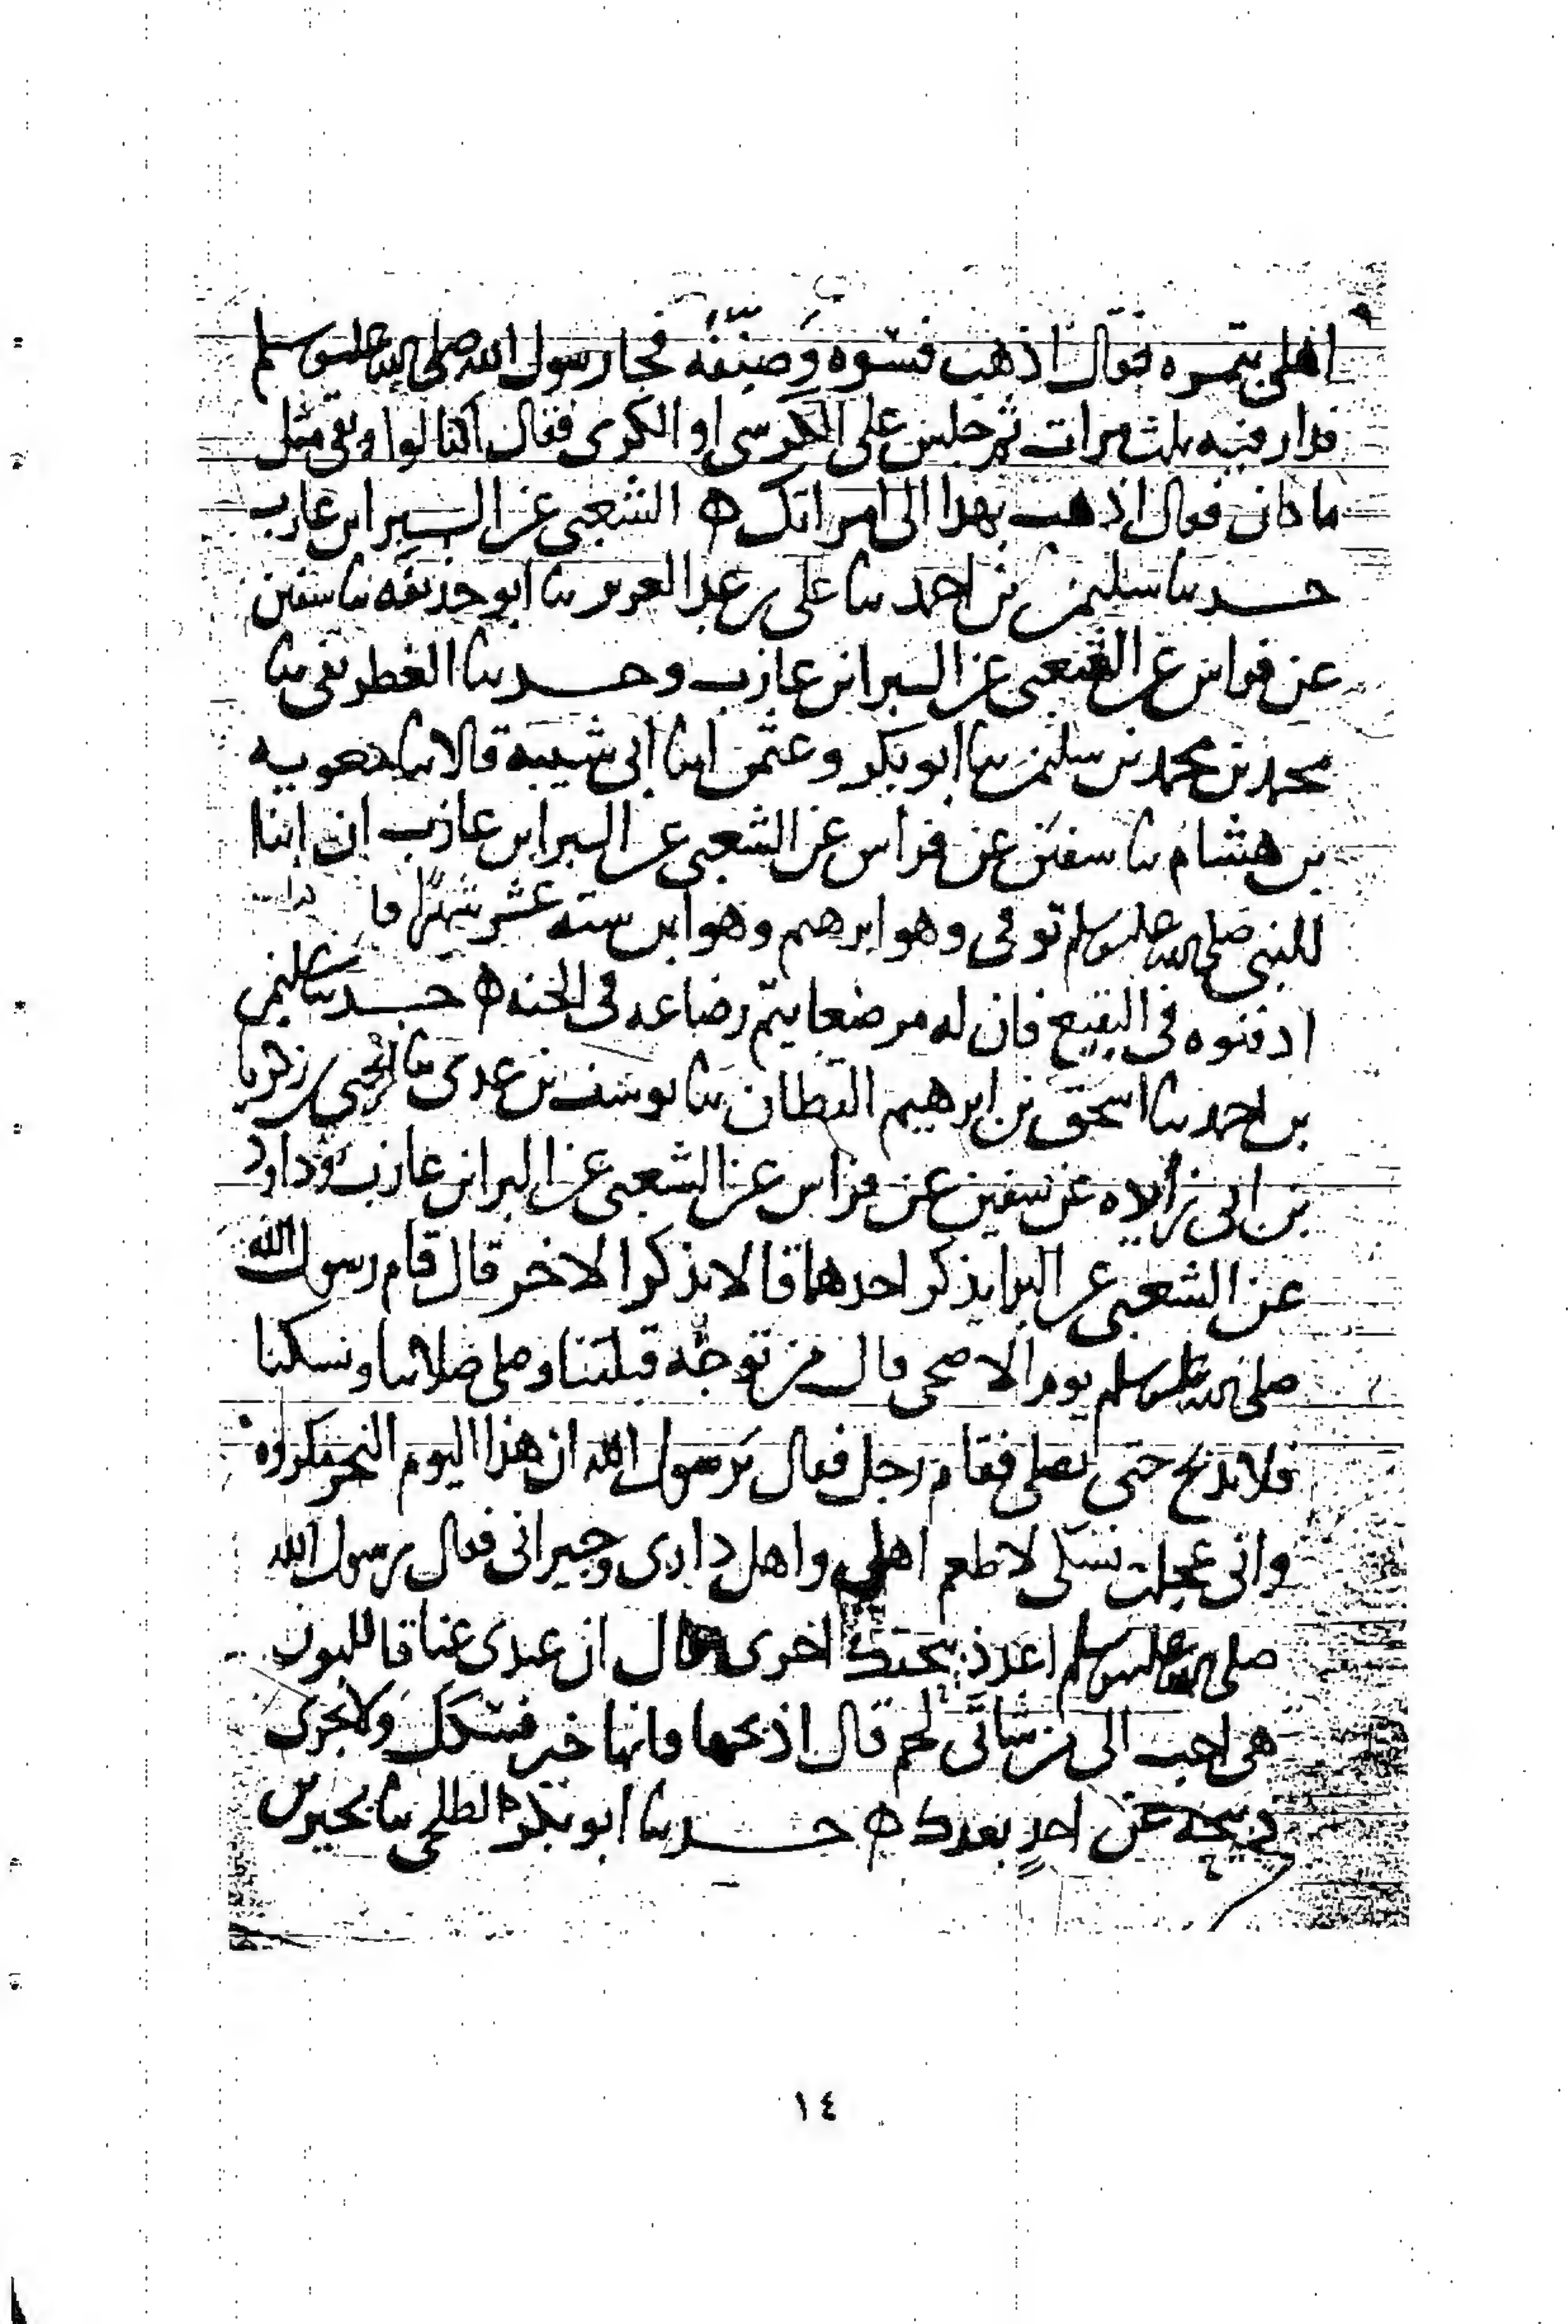 اهلى بتمره فقال اذهب فسوه وصنفه فجا رسول الله صلى الله عليه وسلم
فدار فيه ثلث مرات ثم جلس على الكرسى او الكرى فقال اكتالوا وبقى مثل
ما كان فقال اذهب بهذا الى امراتك ه الشعبى عن البرا بن عازب
حدثنا سليمن بن احمد ثنا على بن عبد العزيز ثنا ابو حذيفه ثنا سفين
عن فراس عن الشعبى عن البرا بن عازب وحدثنا الغطريفى ثنا
محمد بن محمد بن سليمن ثنا ابو بكر وعثمن ابنا ابى شيبه قالا ثنا معويه
بن هشام ثنا سفين عن فراس عن الشعبى عن البرا بن عازب ان ابنا
للنبى صلى الله عليه وسلم توفى وهو ابرهيم وهو ابن سته عشر شهرا
ادفنوه فى البقيع فان له مرضعا يتم رضاعه فى الجنه ه حدثنا سليمن
بن احمد ثنا اسحق بن ابرهيم القطان ثنا يوسف بن عدى ثنا يحيى بن زكريا
بن ابى زايده عن سفين عن فراس عن الشعبى عن البرا بن عازب وداود
عن الشعبى عن البرا يذكر احدهما قالا يذكر الاخر قال قام رسول الله
صلى الله عليه وسلم يوم الاضحى قال من توجه قبلتنا وصلى صلاتنا ونسكنا
فلا يذبح حتى يصلى فقام رجل فقال يرسول الله ان هذا اليوم النحر مكروه
وانى عجلت نسكى لاطعم اهلى واهل دارى وجيرانى فقال رسول الله
صلى الله عليه وسلم اعد ذبيحتك اخرى قال ان عندى عناقا للبون
هى احب الى من شاتى لحم قال اذبحها فانها خير نسكك ولا تجزى
ذبيحه عن احد بعدك ه حدثنا ابو بكر الطلحى ثنا
١٤